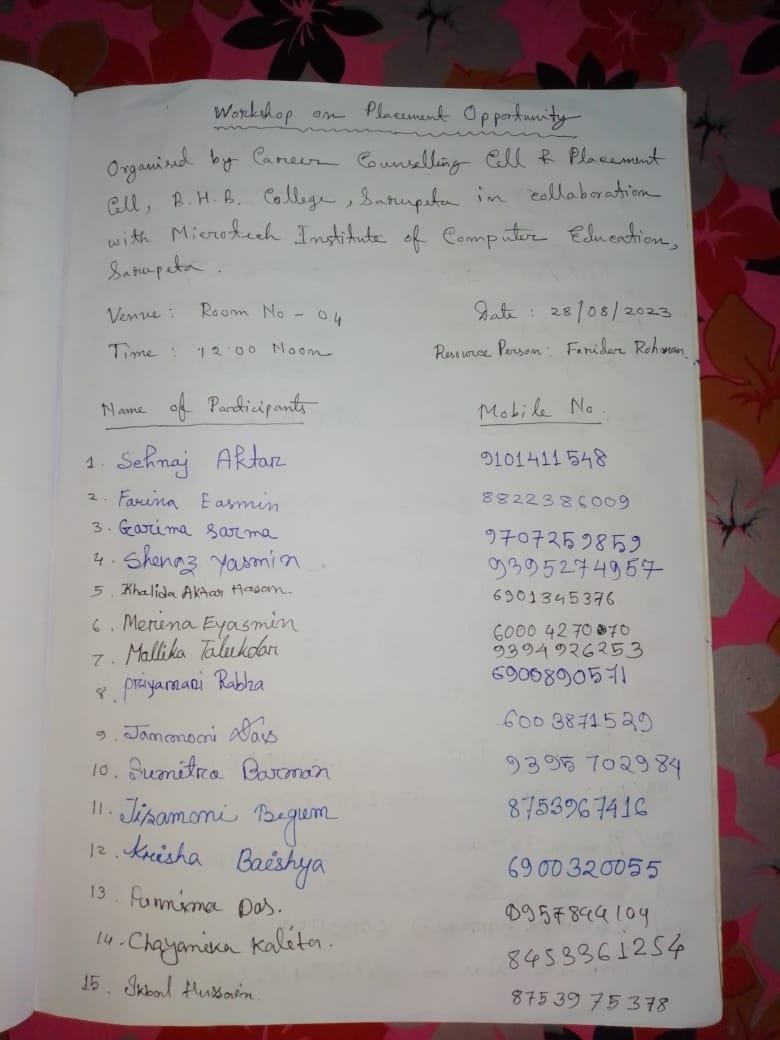 Workshop on Placement Opportunity
Organised by Career Counselling Cell & Placement
Cell, B.H.B. College, Sarupeta in collaboration
with Microtech Institute of Computer Education,
Sarupeta.
Venue: Room No - 04 Date: 28/08/2023
Time: 12:00 Noon Resource Person: Faridar Rohman
Name of Participants Mobile No.
1. Sehnaj Aktar 9101411548
2. Farina Easmin 8822386009
3. Garima Sarma 9707259859
4. Shenaz Yasmin 9395274957
5. Khalida Aktar Hasan. 6901345376
6. Merina Eyasmin 6000427070
7. Mallika Talukdar 9394926253
8. Priyamani Rabha 6900890571
9. Jamonomi Das 6003871529
10. Sumitra Barman 9395702984
11. Jipamoni Begum 8753967416
12. Krisha Baishya 6900320055
13. Purnima Das.
14. Chayanika Kalita. 8453361254
15. Ikbal Hussain. 8753975378